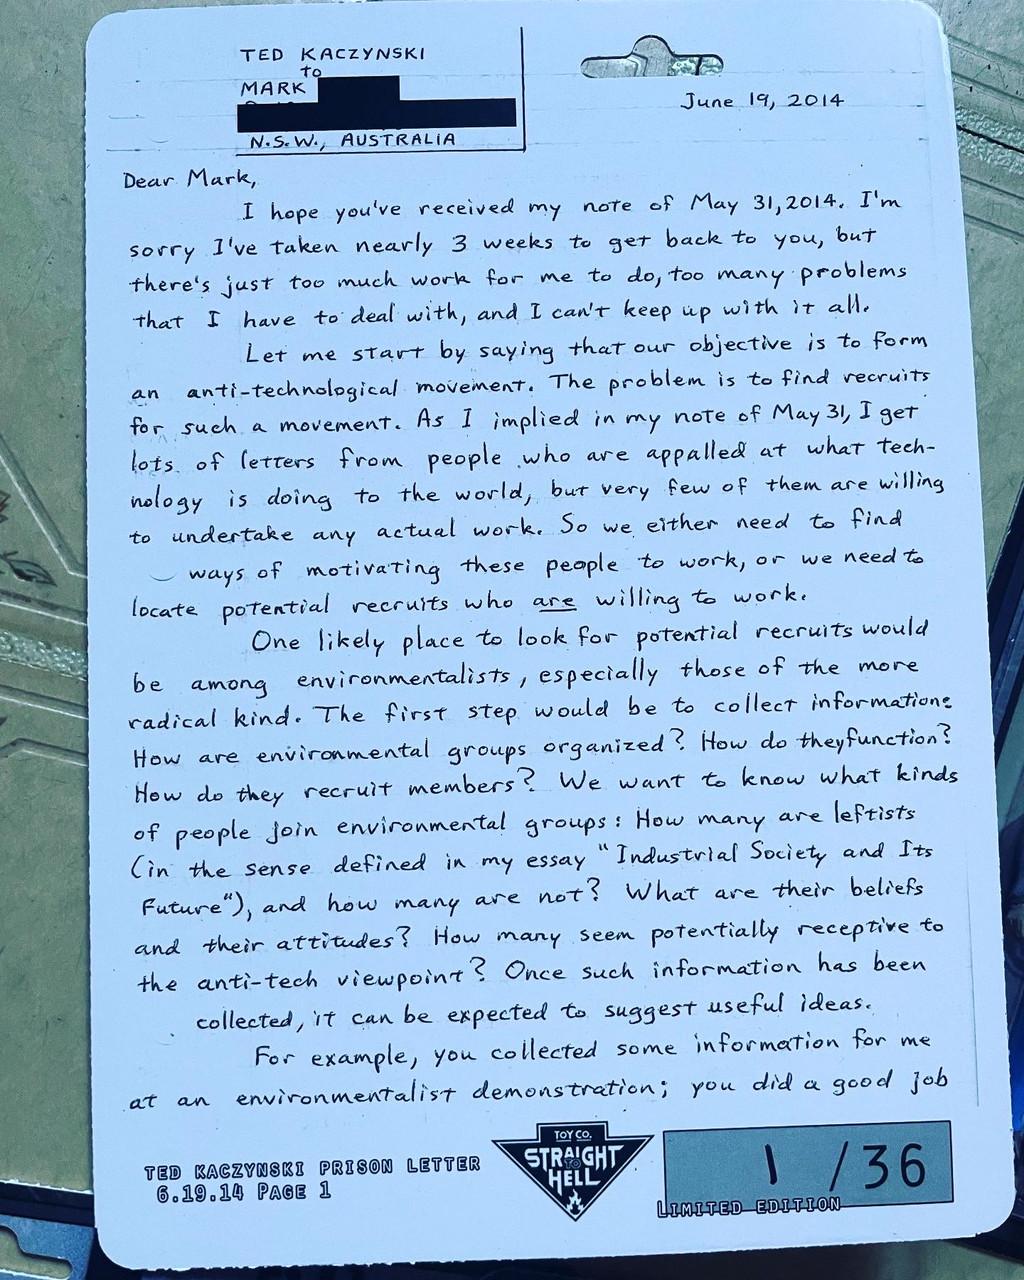 TED KACZYNSKI
to
MARK
N.S.W., AUSTRALIA
June 19, 2014
Dear Mark,
I hope you've received my note of May 31, 2014. I'm
sorry I've taken nearly 3 weeks to get back to you, but
there's just too much work for me to do, too many problems
that I have to deal with, and I can't keep up with it all.
Let me start by saying that our objective is to form
an anti-technological movement. The problem is to find recruits
for such a movement. As I implied in my note of May 31, I get
lots of letters from people who are appalled at what tech-
nology is doing to the world, but very few of them are willing
to undertake any actual work. So we either need to find
ways of motivating these people to work, or we need to
locate potential recruits who are willing to work.
One likely place to look for potential recruits would
be among environmentalists, especially those of the more
radical kind. The first step would be to collect information:
How are environmental groups organized? How do they function?
How do they recruit members? We want to know what kinds
of people join environmental groups: How many are leftists
(in the sense defined in my essay "Industrial Society and Its
Future"), and how many are not? What are their beliefs
and their attitudes? How many seem potentially receptive to
the anti-tech viewpoint? Once such information has been
collected, it can be expected to suggest useful ideas.
For example, you collected some information for me
at an environmentalist demonstration; you did a good job
TED KACZYNSKI PRISON LETTER
6.19.14 PAGE 1
TOY CO.
STRAIGHT
TO
HELL
1 /36
LIMITED EDITION